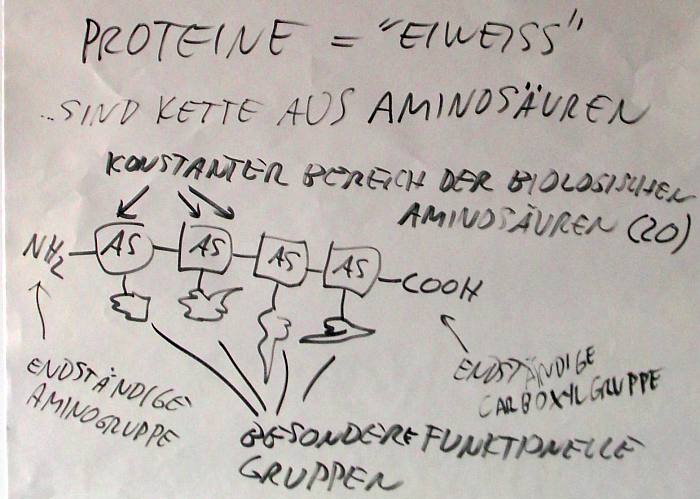 PROTEINE = "EIWEISS"
...SIND KETTE AUS AMINOSÄUREN
KONSTANTER BEREICH DER BIOLOGISCHEN
AMINOSÄUREN (20)
NH2 AS AS AS AS COOH
ENDSTÄNDIGE
AMINOGRUPPE
ENDSTÄNDIGE
CARBOXYLGRUPPE
BESONDERE FUNKTIONELLE
GRUPPEN